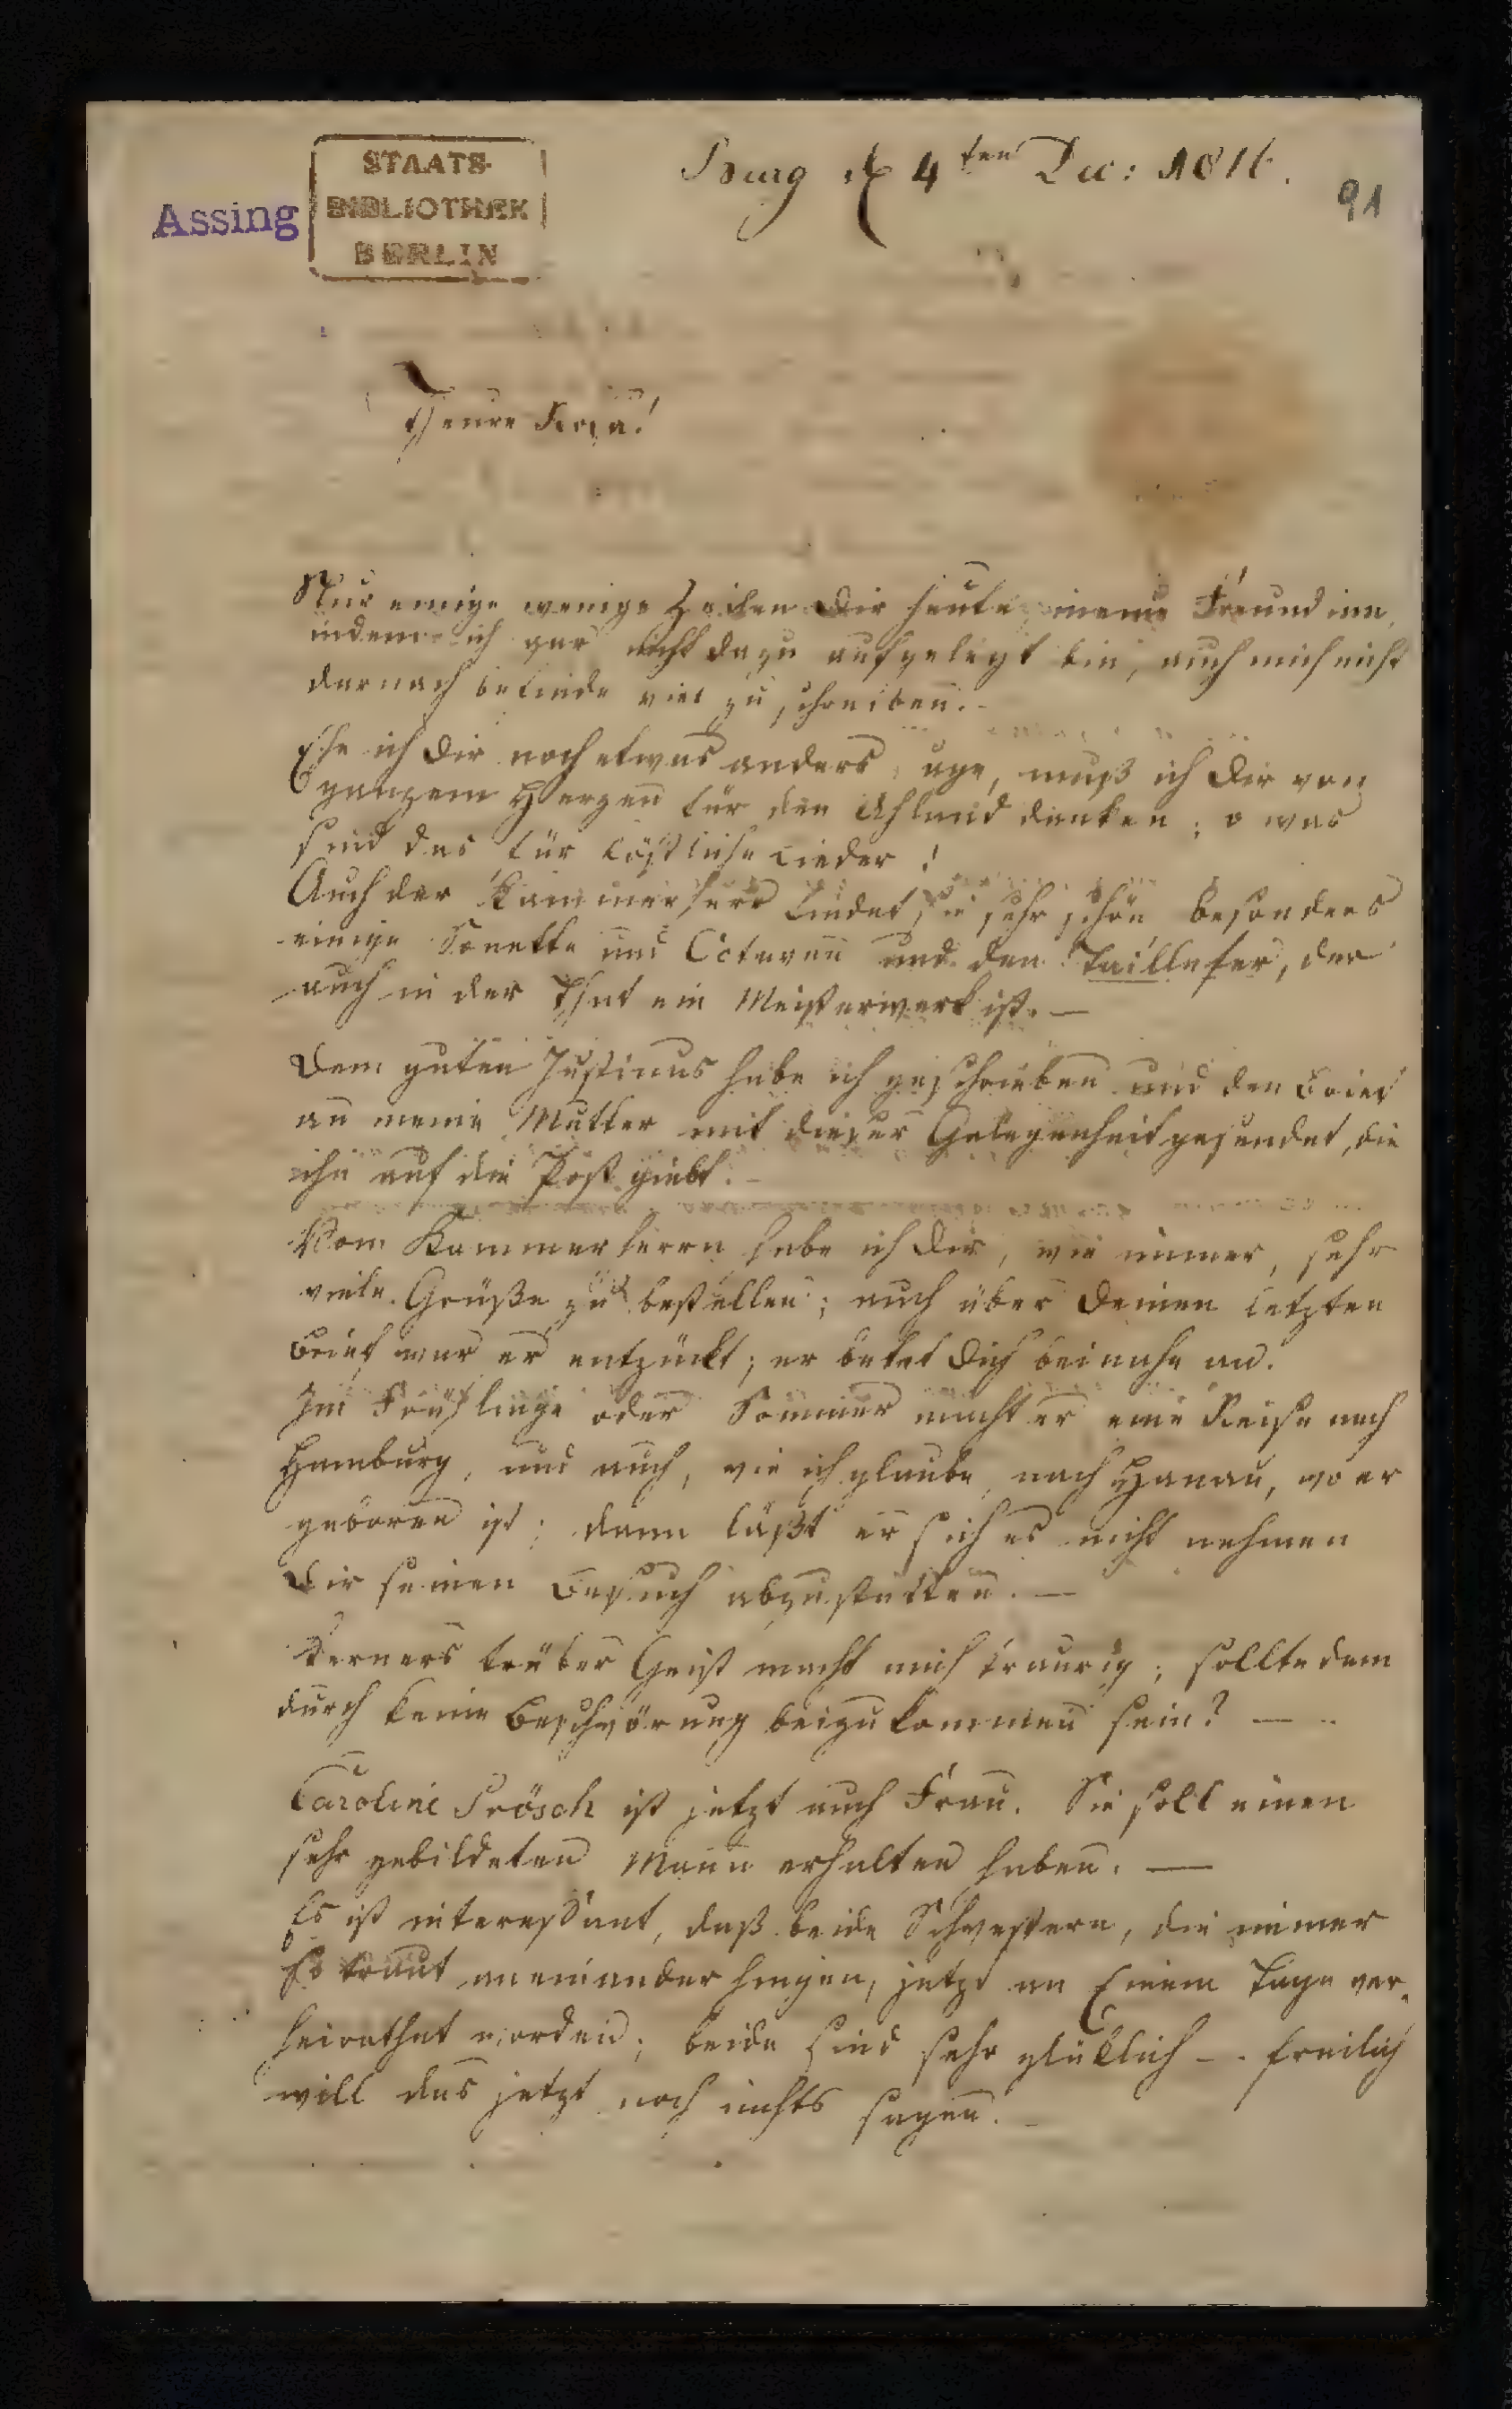 Burg d 4ten Dec: 1816.
91
Assing
STAATS-
BIBLIOTHEK
BERLIN
Theure Rosa!
Nur einige wenige Zeilen Dir heute meine Freundinn,
indem ich gar nicht dazu aufgelegt bin, auch mich nicht
darnach befinde viel zu schreiben. -
Ehe ich Dir noch etwas anders sage, muß ich Dir von
ganzem Herzen für den Uhland danken; o was
sind das für köstliche Lieder!
Auch der Kammerherr findet sie sehr schön besonders
einige Sonette und Octaven und den Taillefer, der
auch in der That ein Meisterwerk ist. —
Dem guten Justinus habe ich geschrieben und den Brief
an meine Mutter mit dieser Gelegenheit gesendet, die
ihn auf die Post giebt. -
Vom Kammerherrn habe ich Dir, wie immer, sehr
viele Grüße zu bestellen; auch über Deinen letzten
Brief war er entzückt; er betet Dich beinahe an.
Im Frühlinge oder Sommer macht er eine Reise nach
Hamburg, und auch, wie ich glaube, nach Hanau, wo er
geboren ist; dann läßt er sich es nicht nehmen
Dir seinen Besuch abzustatten. —
Kerners trüber Geist macht mich traurig; sollte dem
durch keine Beschwörung beizukommen sein? —
Caroline Prösch ist jetzt auch Frau. Sie soll einen
sehr gebildeten Mann erhalten haben. —
Es ist interessant, daß beide Schwestern, die immer
so traut aneinander hingen, jetzt an Einem Tage ver-
heirathet worden; beide sind sehr glüklich -. freilich
will das jetzt noch nichts sagen. -